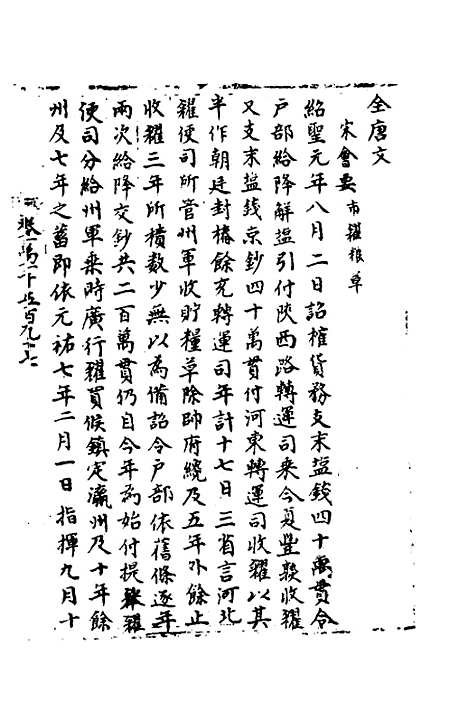 全唐文
宋會要 市糴粮草
紹聖元年八月二日詔榷貨務支末塩錢四十萬貫令
戶部給降解塩引付陝西路轉運司乘今夏豐熟收糴
又支末塩錢京鈔四十萬貫付河東轉運司收糴以其
半作朝廷封樁餘充轉運司年計十七日三省言河北
糴便司所管州軍收貯糧草除帥府纔及五年外餘止
收糴三年所積數少無以為備詔令戶部依舊條逐年
兩次給降交鈔共二百萬貫仍自今年為始付提舉糴
便司分給州軍乘時廣行糴買候鎮定瀛州及十年餘
州及七年之蓄即依元祐七年二月一日指揮九月十
卷一萬一千五百九十七